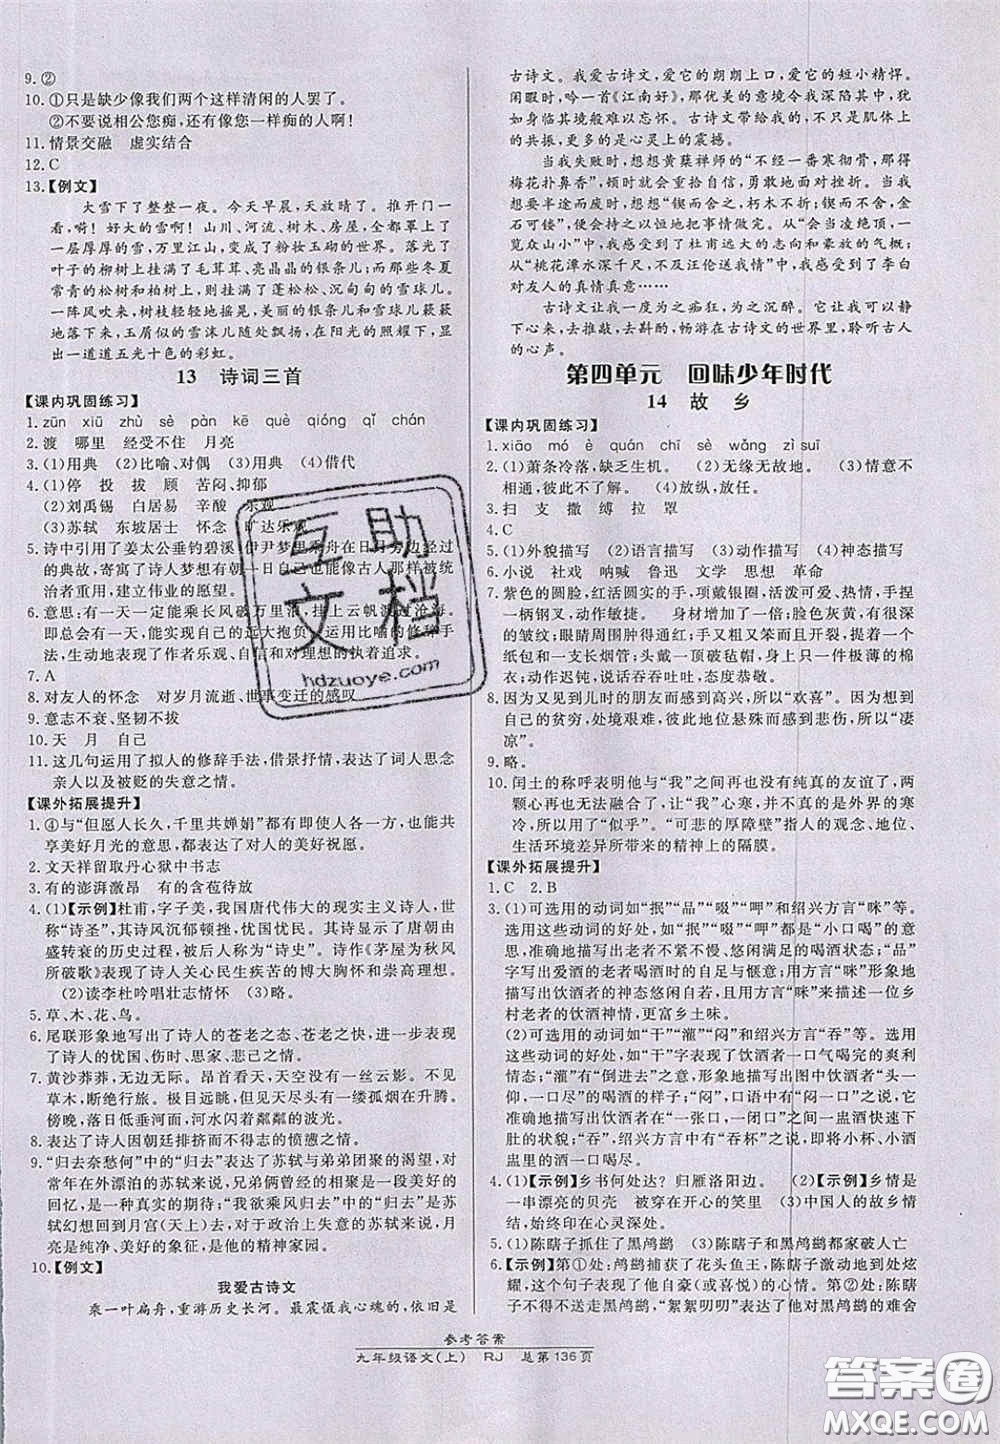 9.②
10.①只是缺少像我们两个这样清闲的人罢了。
②不要说相公您痴,还有像您一样痴的人啊!
11.情景交融 虚实结合
12.C
13.【例文】
大雪下了整整一夜。今天早晨,天放晴了。推开门一
看,嗬!好大的雪啊!山川、河流、树木、房屋,全都罩上了
一层厚厚的雪,万里江山,变成了粉妆玉砌的世界。落光了
叶子的柳树上挂满了毛茸茸、亮晶晶的银条儿;而那些冬夏
常青的松树和柏树上,则挂满了蓬松松、沉甸甸的雪球儿。
一阵风吹来,树枝轻轻地摇晃,美丽的银条儿和雪球儿簌簌
地落下来,玉屑似的雪沫儿随处飘扬,在阳光的照耀下,显
出一道道五光十色的彩虹。
13 诗词三首
【课内巩固练习】
1.zūn xiū zhù sè pàn kē què qióng qǐ chán
2.渡 哪里 经受不住 月亮
3.(1)用典 (2)比喻、对偶 (3)用典 (4)借代
4.(1)停 投 拔 顾 苦闷、抑郁
(2)刘禹锡 白居易 辛酸 乐观
(3)苏轼 东坡居士 怀念 旷达乐观
5.诗中引用了姜太公垂钓碧溪、伊尹梦里乘舟在日月旁边经过
的典故,寄寓了诗人梦想有朝一日自己也能像古人那样被统
治者重用,建立伟业的愿望。
6.意思:有一天一定能乘长风破万里浪,挂上云帆渡过沧海。
即总会有一天,实现自己的远大抱负。运用比喻的修辞手
法,生动地表现了作者乐观、自信和对理想的执着追求。
7.A
8.对友人的怀念 对岁月流逝、世事变迁的感叹
9.意志不衰、坚韧不拔
10.天 月 自己
11.这几句运用了拟人的修辞手法,借景抒情,表达了词人思念
亲人以及被贬的失意之情。
【课外拓展提升】
1.④与“但愿人长久,千里共婵娟”都有即使人各一方,也能共
享美好月光的意思,都表达了人们的美好祝愿。
2.文天祥留取丹心狱中书志
3.有的澎湃激昂 有的含苞待放
4.(1)【示例】杜甫,字子美,我国唐代伟大的现实主义诗人,世
称“诗圣”,其诗风沉郁顿挫,忧国忧民。其诗显示了唐朝由
盛转衰的历史过程,被后人称为“诗史”。诗作《茅屋为秋风
所破歌》表现了诗人关心民生疾苦的博大胸怀和崇高理想。
(2)读李杜吟唱壮志情怀 (3)略。
5.草、木、花、鸟。
6.尾联形象地写出了诗人的苍老之态、苍老之状,其中蕴含
了诗人的忧国、伤时、思家、悲己之情。
7.黄沙莽莽,无边无际。昂首看天,天空没有一丝云影。不见
草木,断绝行旅。极目远眺,但见天尽头有一缕孤烟在升腾。
傍晚,落日低垂河面,河水闪着粼粼的波光。
8.表达了诗人因朝廷排挤而不得志的愤懑之情。
9.“归去奈愁何”中的“归去”表达了苏轼与弟弟团聚的渴望,对
常年在外漂泊的苏轼来说,兄弟俩曾经的相聚是一种美好的
回忆,是一种真实的期待;“我欲乘风归去”中的“归去”是苏
轼幻想回到月宫(天上)去,对于政治上失意的苏轼来说,月
亮是纯净、美好的象征,是他的精神家园。
10.【例文】
我爱古诗文
乘一叶扁舟,重游历史长河。最震慑我心魂的,依旧是
古诗文。我爱古诗文,爱它的朗朗上口,爱它的短小精悍。
闲暇时,吟一首《江南好》,那优美的意境令我深陷其中,
犹如身临其境般难以忘怀。古诗文带给我的,不单是文学上
的共振,更多的是心灵上的震撼。
当我失败时,想想黄蘖禅师的“不经一番寒彻骨,那得
梅花扑鼻香”,我就会重拾自信,勇敢地面对挫折。当我
想要半途而废时,想想“锲而舍之,朽木不折;锲而不舍,金
石可镂”,便会持之以恒地把事情做完。从“会当凌绝顶,一
览众山小”中,我感受到了杜甫远大的志向和豪放的气概;
从“桃花潭水深千尺,不及汪伦送我情”中,我感受到了李白
对友人的真情真意……
古诗文让我一度为之痴狂,为之沉醉。它让我可以静
下心来,去推敲,去斟酌,畅游在古诗文的世界里,聆听古人
的心声。
第四单元 回味少年时代
14 故 乡
【课内巩固练习】
1.xiāo mó è quán chī sè wǎng zì suī
2.(1)萧条冷落,缺乏生机。 (2)无缘无故地。 (3)情意不
相通,彼此不了解。 (4)放纵,放任。
3.扫 支 撒 缚 拉 罩
4.C
5.(1)外貌描写 (2)语言描写 (3)动作描写 (4)神态描写
6.小说 社戏 呐喊 鲁迅 文学 思想 革命
7.紫色的圆脸,红活圆实的手,项戴银圈,活泼可爱、热情,手捏
一柄钢叉,动作敏捷。 身材增加了一倍;脸色灰黄,有很深
的皱纹;眼睛周围肿得通红;手又粗又笨而且开裂,提着一个
纸包和一支长烟管;头戴一顶破毡帽,身上一件极薄的棉
衣;动作迟钝,说话吞吞吐吐,态度恭敬。
8.因为又见到儿时的朋友而感到高兴,所以“欢喜”。因想到
自己的贫穷,处境艰难,彼此地位悬殊而感到悲伤,所以“凄
凉”。
9.略。
10.闰土的称呼表明他与“我”之间再也没有纯真的友谊了,两
颗心再也无法融合了,让“我”心寒,并不真的是外界的寒
冷,所以用了“似乎”。“可悲的厚障壁”指人的观念、地位、
生活环境差异所带来的精神上的隔膜。
【课外拓展提升】
1.C 2.B
3.(1)可选用的动词如“抿”“品”“啜”“呷”和绍兴方言“咪”等。
选用这些动词的好处,如“抿”“啜”“呷”都是“小口喝”的意思,
准确地描写出老者不紧不慢、悠闲满足的喝酒状态;“品”
字写出了爱酒的老者喝酒时的自足与惬意;用方言“咪”形象地
描写出饮酒者的神态悠然自得,(2)
村老者的饮酒神情,更富乡土味。
(2)可选用的动词如“干”“灌”“闷”和绍兴方言“吞”等。选用
这些动词的好处,如“干”字表现了饮酒者一口气喝完的爽利
情态;“灌”有“倒进去”的意思,形象地描写出图中饮酒者“头一
仰,一口尽”的喝酒的样子;“闷”,口语中有“一口闷”之说,形
象而准确地描写了饮酒者“一张口,一闭口”之间一盅酒快速下
肚的情状;“吞”,绍兴方言中有“吞杯”之说,即将小杯、小酒
盅里的酒一口喝尽。
4.(1)【示例】乡书何处达?归雁洛阳边。 (2)【示例】乡情是
一串漂亮的贝壳 被穿在开心的笑里 (3)中国人的故乡情
结,始终印在心灵深处。
5.(1)陈瞎子抓住了黑鸬鹚 (3)陈瞎子和黑鸬鹚都家破人亡
6.【示例】第①处:鸬鹚捕获了花头鱼王,陈瞎子激动地到处炫
耀,这个句子表现了他自豪(或喜悦)的心情。第②处:陈瞎
子不得不送走黑鸬鹚,“絮絮叨叨”表达了他对黑鸬鹚的难舍
参考答案
九年级语文(上) RJ 总第136页
互助文档
hdzuoye.com
答案圈
MXQE.COM